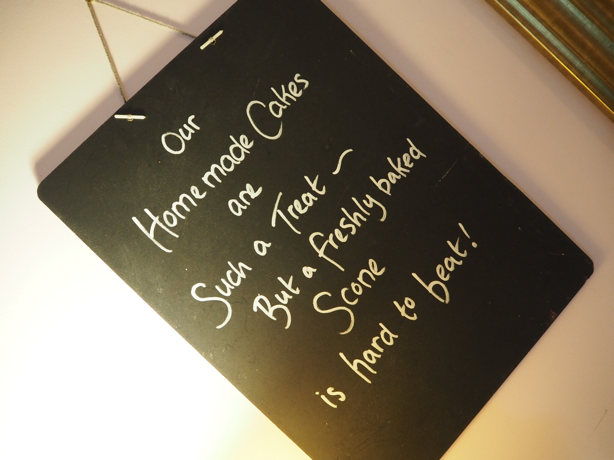 Our
Homemade Cakes
are
Such a Treat ~
But a freshly baked
Scone
is hard to beat!